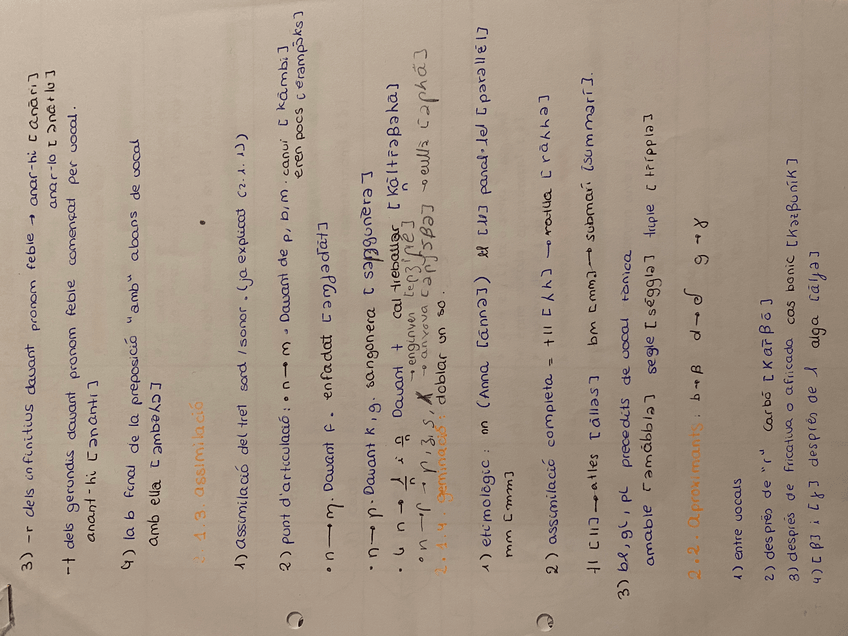 3) -r dels infinitius davant pronom feble → anar-hi [ənári]
anar-lo [ənáɫlu]
-t dels gerundis davant pronom feble començat per vocal.
anant-hi [ənánti]
4) la b final de la preposició "amb" abans de vocal
amb ella [əmbéʎə]
2.1.3 assimilació
1) assimilació del tret sord / sonor. (ja explicat (2.1.1)
2) punt d'articulació: • n → m. Davant de p, b, m. canvi [kámbi]
eren pocs [érəmpɔ́ks]
• n → ɱ. Davant f. enfadat [əɱfəðát]
• n → ŋ. Davant k, g. sangonera [səŋgunéɾə]
Davant t cal treballar
→ enginyer
→ anxova → eulla
2.1.4. geminació: doblar un so.
1) etimològic: nn (Anna [ánnə]) ll [ll] paral·lel [pərəllél]
mm [mm]
2) assimilació completa = tll [ʎʎ] → ratlla [ráʎʎə]
tl [ll] → atles [álləs] bm [mm] → submarí [summərí].
3) bl, gl, pl precedits de vocal tònica
amable [əmábblə] segle [ségglə] triple [trípplə]
2.2. Aproximants: b→β d→ð g→ɣ
1) entre vocals
2) després de "r" carbó [kərβó]
3) després de fricativa o africada cas bonic [kazβuník]
4) [β] i [ɣ] després de l alga [álɣə]